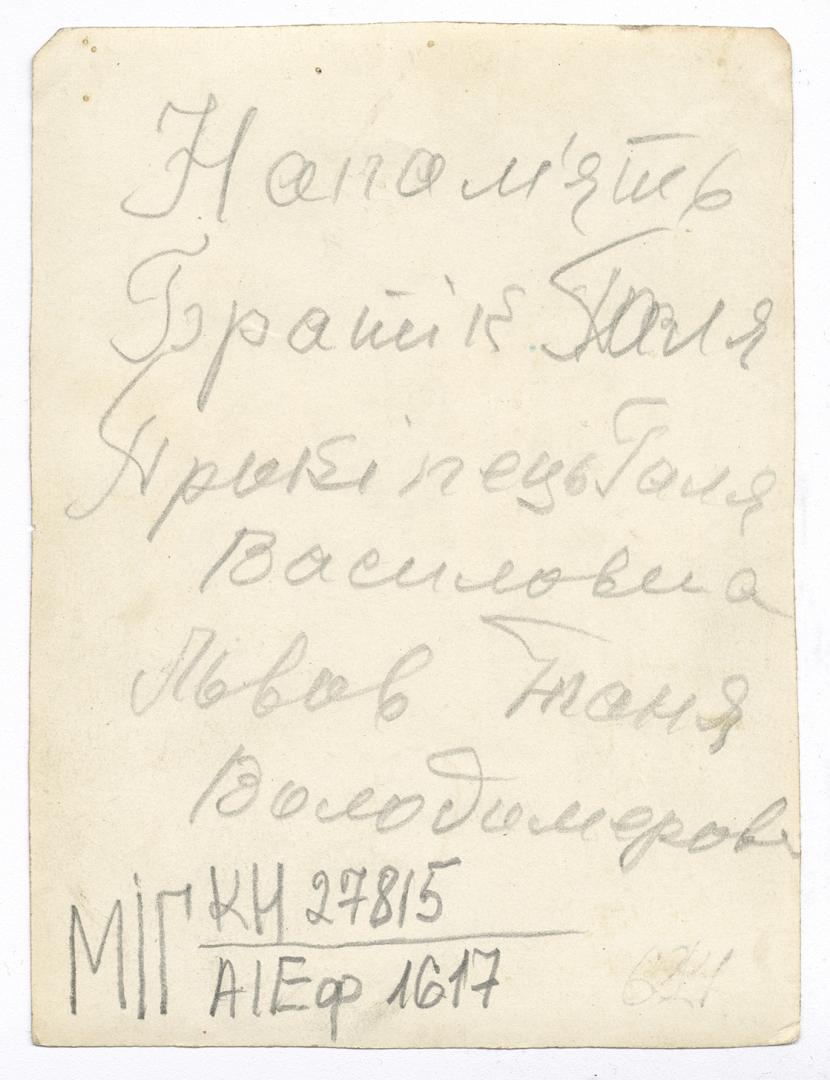 Напам'ять
Братік Галя
Прюкінець Галя
Василовна
Львов Таня
Володимеров
МІГ КН 27815
АІЕф 1617